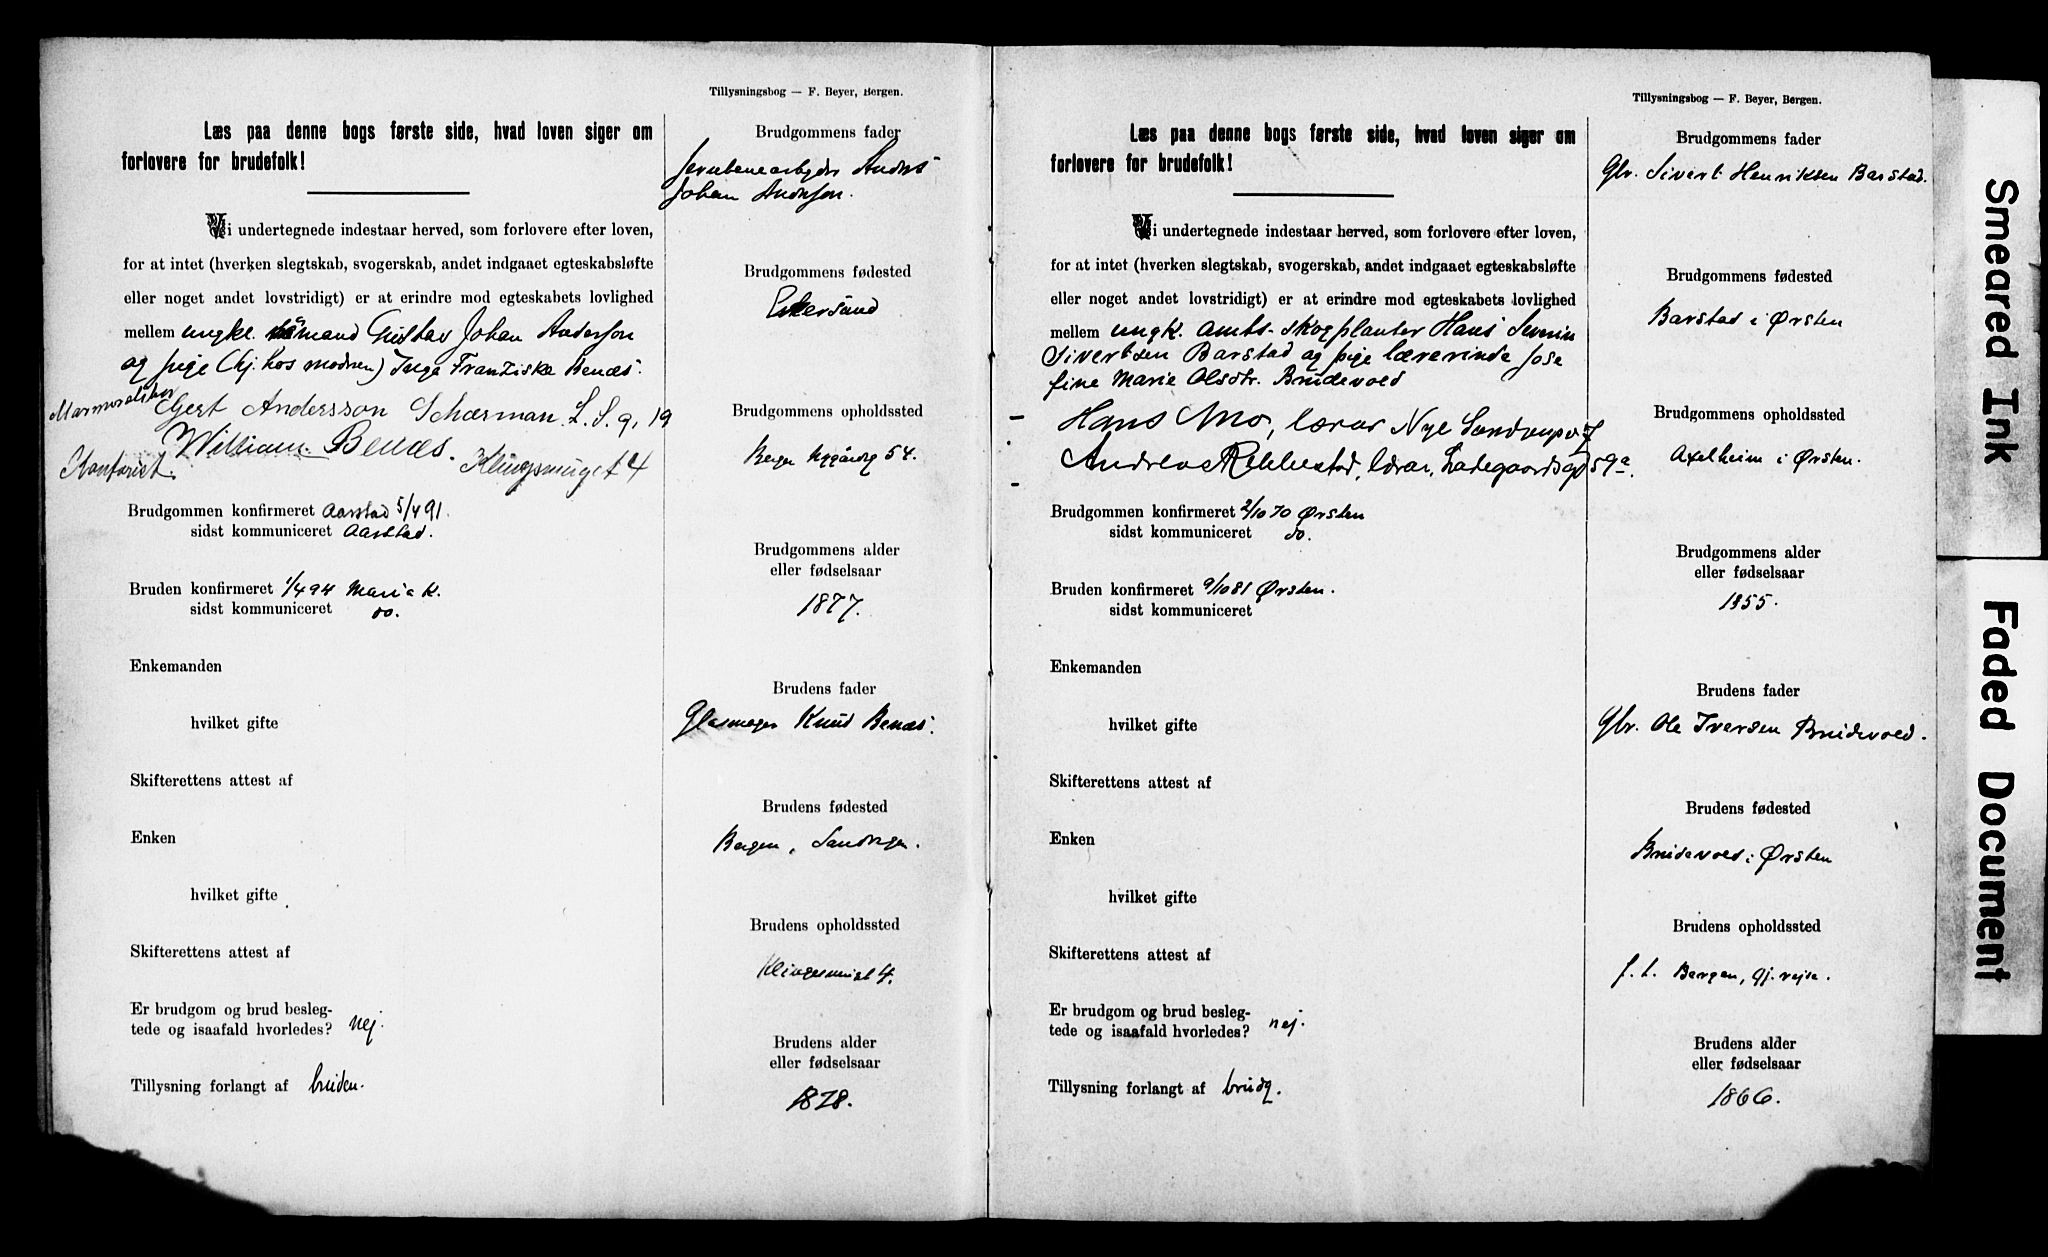 Tillysningsbog — F. Beyer, Bergen.
Læs paa denne bogs første side, hvad loven siger om
forlovere for brudefolk!
Vi undertegnede indestaar herved, som forlovere efter loven,
for at intet (hverken slegtskab, svogerskab, andet indgaaet egteskabsløfte
eller noget andet lovstridigt) er at erindre mod egteskabets lovlighed
mellem ungkl. sømand Gustav Johan Anderson
og pige (hj. hos modren) Inga Franziske Benæs.
Gert Andersson Scharman. L. S. g. 19
William Benæs. Klingsmuget 4
Kontorist.
Brudgommen konfirmeret Aarstad 5/4 91.
sidst kommuniceret Aarstad.
Bruden konfirmeret 1/4 94 Maria K.
sidst kommuniceret do.
Enkemanden
hvilket gifte
Skifterettens attest af
Enken
hvilket gifte
Skifterettens attest af
Er brudgom og brud besleg-
tede og isaafald hvorledes? nej.
Tillysning forlangt af bruden.
Brudgommens fader
Jernbanearbejder Anders
Johan Anderson.
Brudgommens fødested
Ekersund
Brudgommens opholdssted
Bergen 54.
Brudgommens alder
eller fødselsaar
1877.
Brudens fader
Glasmager Knud Benæs.
Brudens fødested
Bergen, Sandvigen.
Brudens opholdssted
Klingesmuget 4.
Brudens alder
eller fødselsaar
1878.
Tillysningsbog — F. Beyer, Bergen.
Læs paa denne bogs første side, hvad loven siger om
forlovere for brudefolk!
Vi undertegnede indestaar herved, som forlovere efter loven,
for at intet (hverken slegtskab, svogerskab, andet indgaaet egteskabsløfte
eller noget andet lovstridigt) er at erindre mod egteskabets lovlighed
mellem ungk. amts-skogplanter Hans Severin
Sivertsen Barstad og pige lærerinde Jose
fine Marie Olsdtr. Brudevold
Hans Mo, lærar Nye Sandvigsv 7
Andreas Rekkestad, lærar, Ladegaardsgd 59a.
Brudgommen konfirmeret 2/10 70 Ørsten
sidst kommuniceret do.
Bruden konfirmeret 9/10 81 Ørsten.
sidst kommuniceret
Enkemanden
hvilket gifte
Skifterettens attest af
Enken
hvilket gifte
Skifterettens attest af
Er brudgom og brud besleg-
tede og isaafald hvorledes? nej.
Tillysning forlangt af brudg.
Brudgommens fader
Gbr. Sivert Henriksen Barstad.
Brudgommens fødested
Barstad i Ørsten
Brudgommens opholdssted
Axelheim i Ørsten.
Brudgommens alder
eller fødselsaar
1855.
Brudens fader
Gbr. Ole Iversen Brudevold.
Brudens fødested
Brudevold i Ørsten
Brudens opholdssted
f. t. Bergen, gj. rejse.
Brudens alder
eller fødselsaar
1866.
Smeared Ink
Faded Document